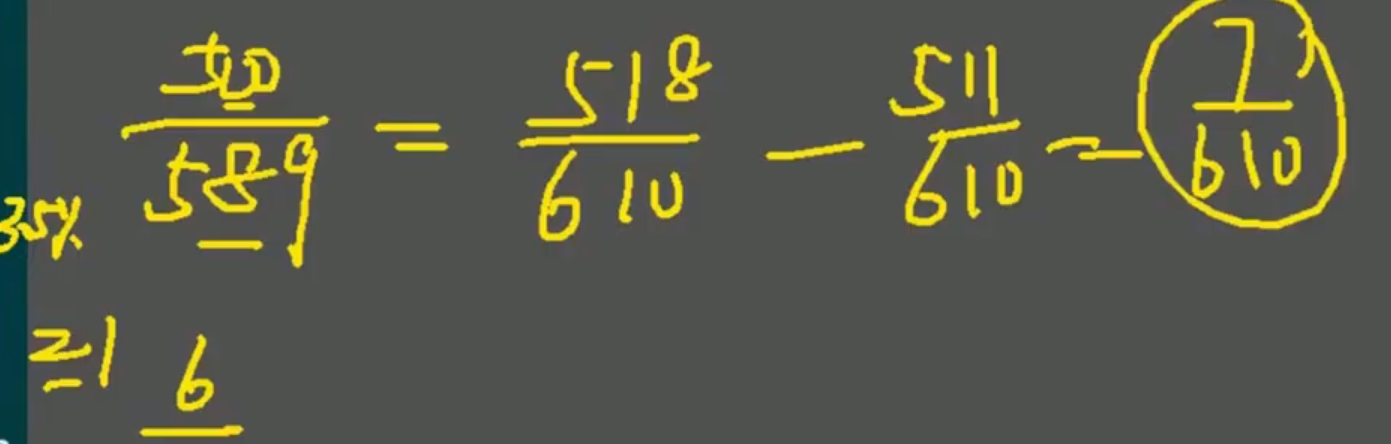 589 = 518/610 - 511/610 = 7/610
35%
=1 6